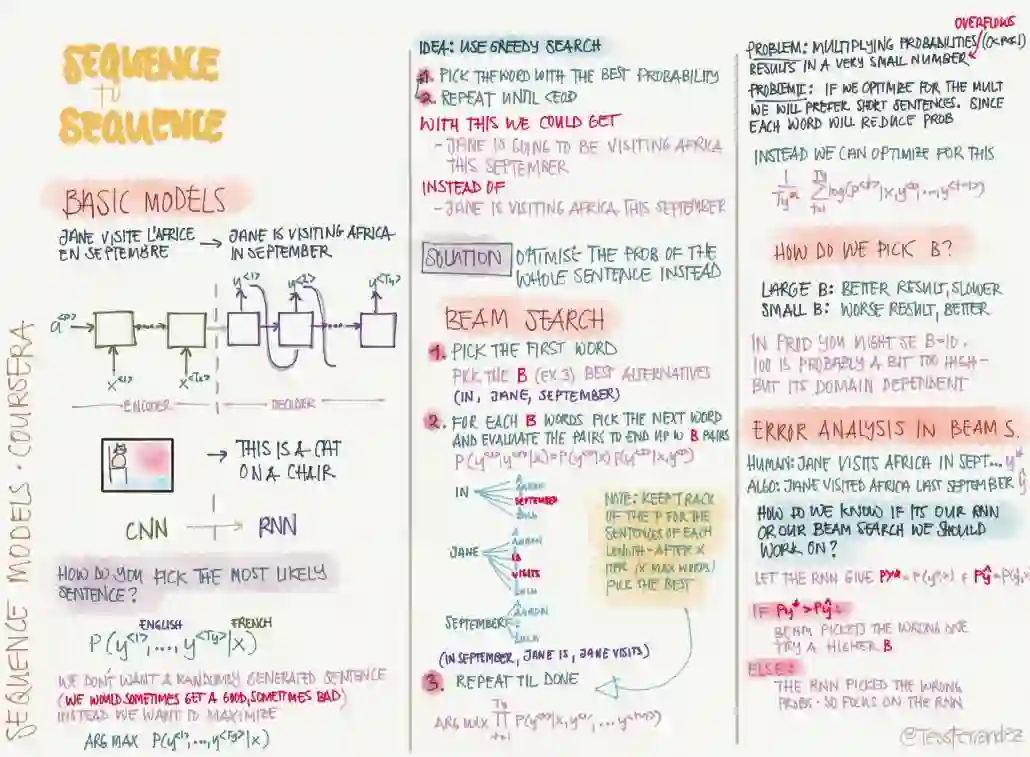 SEQUENCE
TO
SEQUENCE
BASIC MODELS
JANE VISITE L'AFRICE
EN SEPTEMBRE → JANE IS VISITING AFRICA
IN SEPTEMBER
y<1> y<2> y<Ty>
a<0>
x<1> x<Tx>
ENCODER DECODER
→ THIS IS A CAT
ON A CHAIR
CNN → RNN
HOW DO YOU PICK THE MOST LIKELY
SENTENCE?
ENGLISH FRENCH
P(y<1>,...,y<Ty>|x)
WE DON'T WANT A RANDOMLY GENERATED SENTENCE
(WE WOULD SOMETIMES GET A GOOD, SOMETIMES BAD)
INSTEAD WE WANT TO MAXIMIZE
ARG MAX P(y<1>,...,y<Ty>|x)
SEQUENCE MODELS · COURSERA
IDEA: USE GREEDY SEARCH
1. PICK THE WORD WITH THE BEST PROBABILITY
2. REPEAT UNTIL <EOD>
WITH THIS WE COULD GET
- JANE IS GOING TO BE VISITING AFRICA
THIS SEPTEMBER
INSTEAD OF
- JANE IS VISITING AFRICA THIS SEPTEMBER
SOLUTION OPTIMISE THE PROB OF THE
WHOLE SENTENCE INSTEAD
BEAM SEARCH
1. PICK THE FIRST WORD
PICK THE B (EX. 3) BEST ALTERNATIVES
(IN, JANE, SEPTEMBER)
2. FOR EACH B WORDS PICK THE NEXT WORD
AND EVALUATE THE PAIRS TO END UP W B PAIRS
P(y<1>,y<2>|x) = P(y<1>|x) P(y<2>|x,y<1>)
IN
A
AARON
SEPTEMBER
ZULU
JANE
A
AARON
IS
VISITS
ZULU
SEPTEMBER
A
AARON
ZULU
NOTE: KEEP TRACK
OF THE P FOR THE
SENTENCES OF EACH
LENGTH - AFTER X
ITER (X MAX WORDS)
PICK THE BEST
(IN SEPTEMBER, JANE IS, JANE VISITS)
3. REPEAT TIL DONE
ARG MAX ∏ Ty t=1 P(y<t>|x,y<1>,...y<t-1>)
OVERFLOWS
PROBLEM: MULTIPLYING PROBABILITIES (0<P<1)
RESULTS IN A VERY SMALL NUMBER
PROBLEM II: IF WE OPTIMIZE FOR THE MULT
WE WILL PREFER SHORT SENTENCES. SINCE
EACH WORD WILL REDUCE PROB
INSTEAD WE CAN OPTIMIZE FOR THIS
1/Ty^α ∑ Ty t=1 log(P<t>|x,y<1>,...,y<t-1>)
HOW DO WE PICK B?
LARGE B: BETTER RESULT, SLOWER
SMALL B: WORSE RESULT, BETTER
IN PROD YOU MIGHT SE B=10.
100 IS PROBABLY A BIT TOO HIGH -
BUT ITS DOMAIN DEPENDENT
ERROR ANALYSIS IN BEAM S.
HUMAN: JANE VISITS AFRICA IN SEPT... y*
ALGO: JANE VISITED AFRICA LAST SEPTEMBER ŷ
HOW DO WE KNOW IF ITS OUR RNN
OR OUR BEAM SEARCH WE SHOULD
WORK ON?
LET THE RNN GIVE Py* = P(y*|x) & Pŷ = P(ŷ|x
IF Py* > Pŷ:
BEAM PICKED THE WRONG ONE
TRY A HIGHER B
ELSE:
THE RNN PICKED THE WRONG
PROBS - SO FOCUS ON THE RNN
@TessFerrandez